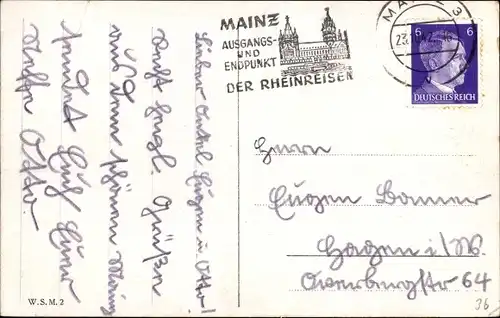 MAINZ
AUSGANGS-
UND
ENDPUNKT
DER RHEINREISEN
MAINZ 3
23.
6 6
DEUTSCHES REICH
Lieber Onkel Eugen u. Otto!
Recht herzl. Grüße
aus dem schönen Mainz
sendet Euch Euer
Neffe Otto.
Herrn
Eugen Banner
Hagen i/W.
Overbergstr 64
W.S.M. 2
36